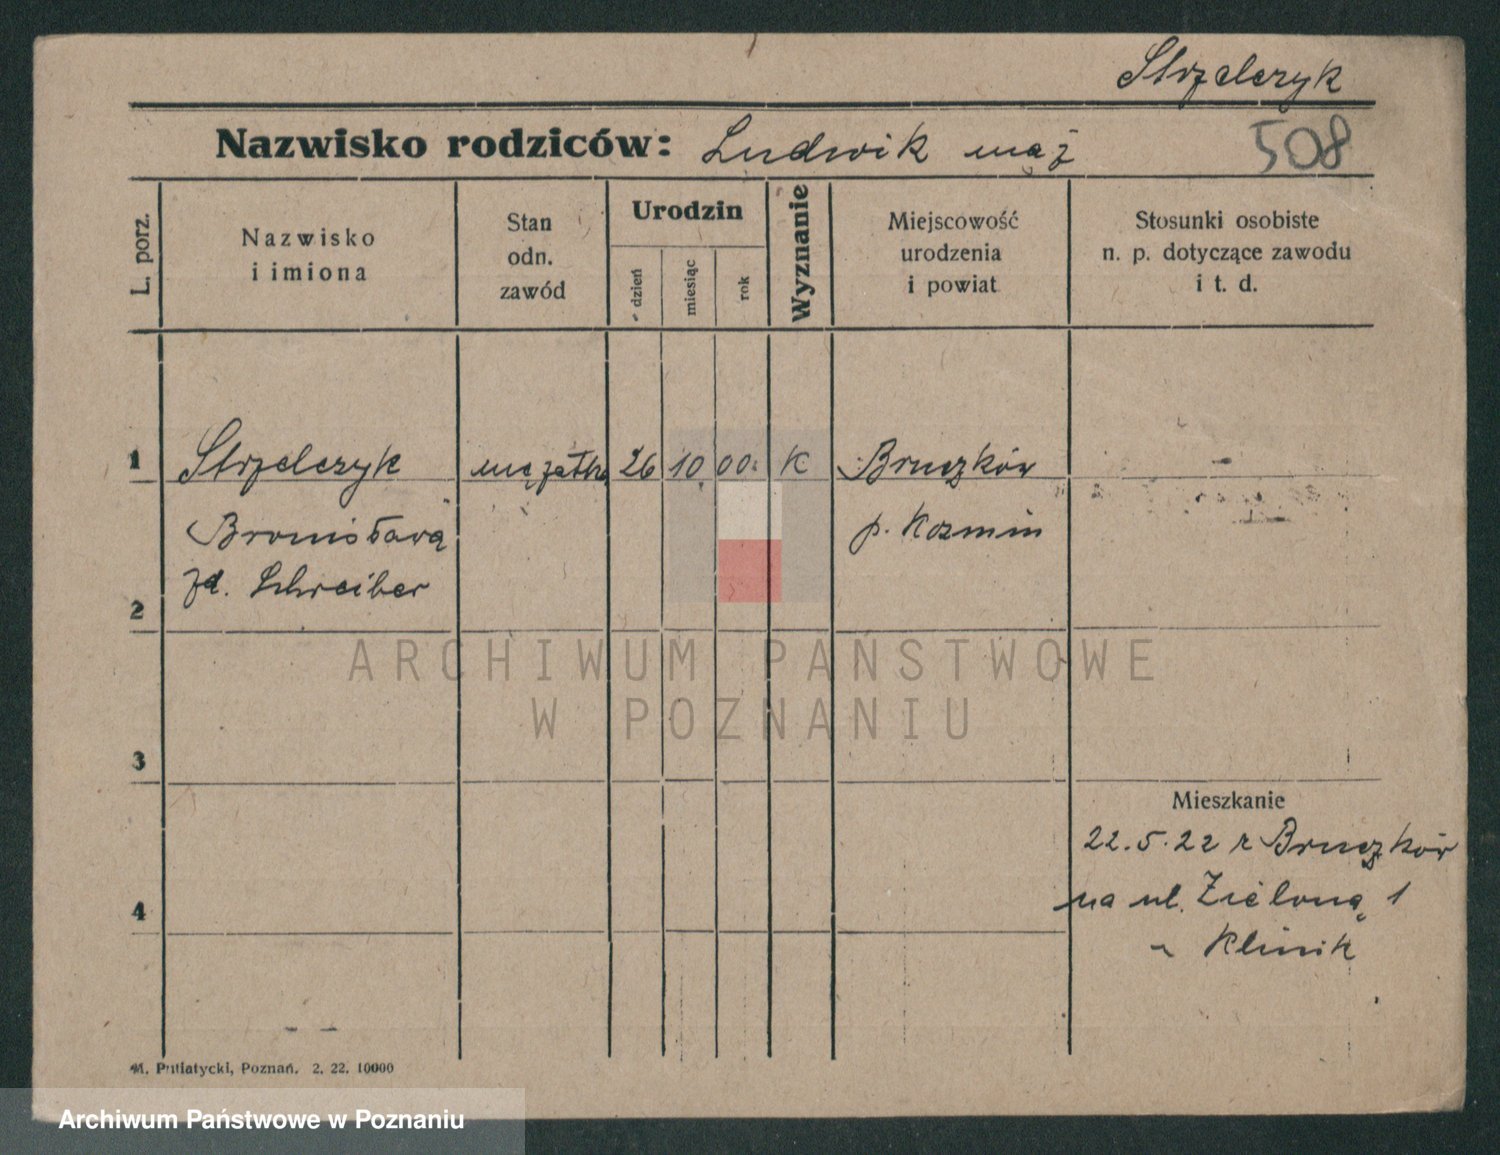 Strzelczyk
Nazwisko rodziców: Ludwik mąż 508
L. porz.
Nazwisko
i imiona
Stan
odn.
zawód
Urodzin
dzień
miesiąc
rok
Wyznanie
Miejscowość
urodzenia
i powiat
Stosunki osobiste
n. p. dotyczące zawodu
i t. d.
1 Strzelczyk mężatka 26 10. 00. K Bruczków
Bronisława p. Kozmin
zd. Schreiber
2
ARCHIWUM PAŃSTWOWE
W POZNANIU
3
Mieszkanie
22.5.22 z Bruczków
na ul. Zieloną 1
4
Klinik
M. Putiatycki, Poznań. 2. 22. 10000
Archiwum Państwowe w Poznaniu